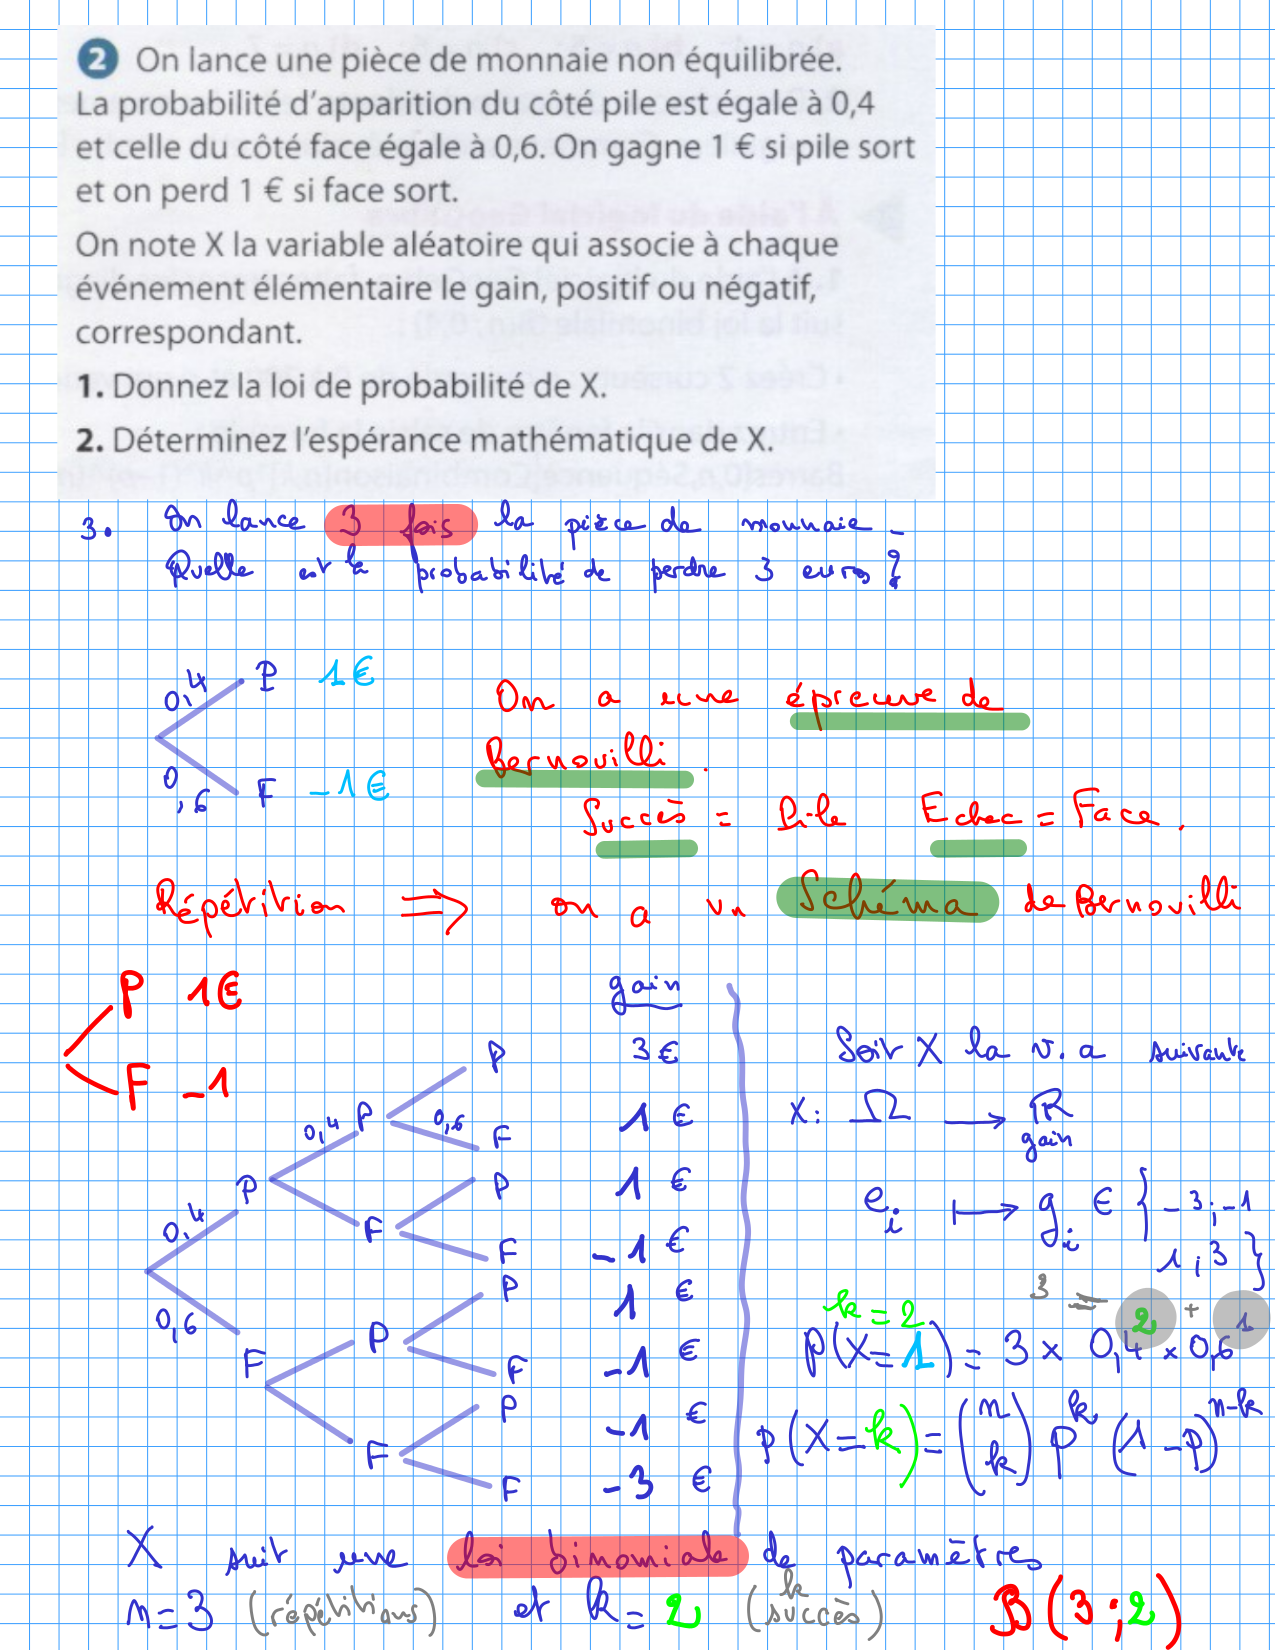 2 On lance une pièce de monnaie non équilibrée.
La probabilité d'apparition du côté pile est égale à 0,4
et celle du côté face égale à 0,6. On gagne 1 € si pile sort
et on perd 1 € si face sort.
On note X la variable aléatoire qui associe à chaque
événement élémentaire le gain, positif ou négatif,
correspondant.
1. Donnez la loi de probabilité de X.
2. Déterminez l'espérance mathématique de X.
3. On lance 3 fois la pièce de monnaie.
Quelle est la probabilité de perdre 3 euros ?
0,4 P 1€
0,6 F -1€
On a une épreuve de
Bernouilli.
Succès = Pile Echec = Face.
Répétition ⟹ on a un Schéma de Bernouilli
P 1€
F -1
gain
P 3€
0,4 P 0,6 F 1 €
0,4 P P 1 €
F F -1 €
0,6 F P P 1 €
F -1 €
F P -1 €
F -3 €
Soit X la v.a suivante
X: Ω → ℝ
gain
e_i ↦ g_i ∈ { -3; -1
1; 3 }
k = 2 3 = 2 + 1
P(X=1) = 3 × 0,4^2 × 0,6^1
P(X=k) = (n k) p^k (1-p)^{n-k}
X suit une loi binomiale de paramètres
n=3 (répétitions) et k=2 (k succès) B(3;2)